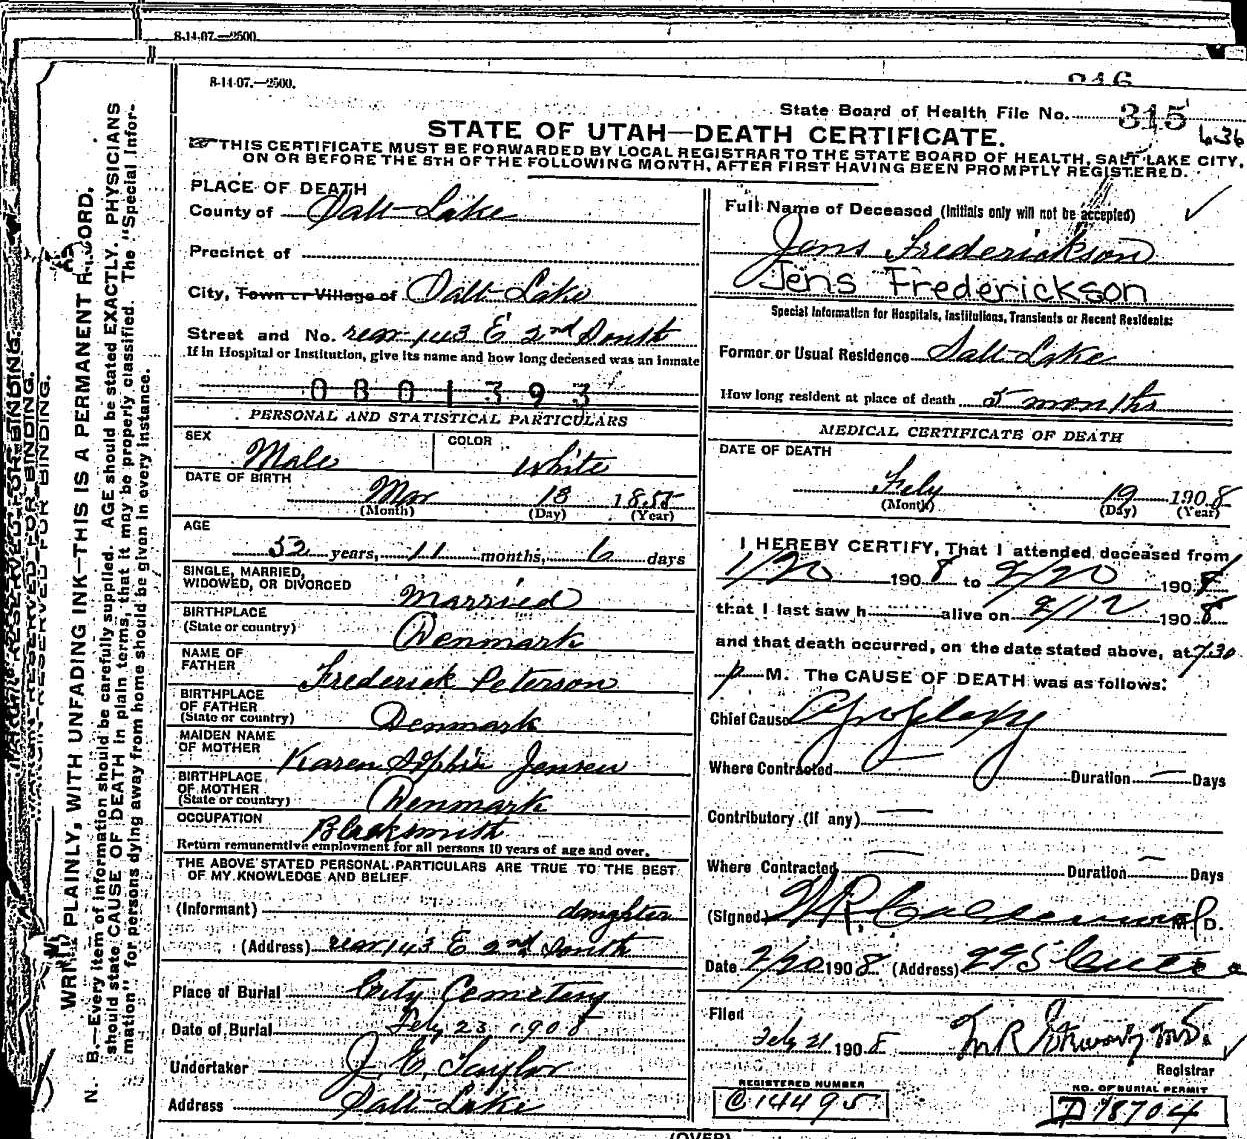 8-14-07.—2500.
8-14-07.—2500.
State Board of Health File No. 315
636
STATE OF UTAH—DEATH CERTIFICATE.
THIS CERTIFICATE MUST BE FORWARDED BY LOCAL REGISTRAR TO THE STATE BOARD OF HEALTH, SALT LAKE CITY,
ON OR BEFORE THE 5TH OF THE FOLLOWING MONTH, AFTER FIRST HAVING BEEN PROMPTLY REGISTERED.
PLACE OF DEATH
County of Salt Lake
Precinct of
City, Town or Village of Salt Lake
Street and No. rear 143 E 2nd South
If in Hospital or Institution, give its name and how long deceased was an inmate
0801393
PERSONAL AND STATISTICAL PARTICULARS
SEX Male
COLOR White
DATE OF BIRTH
Mar 13 1855
(Month) (Day) (Year)
AGE
52 years, 11 months, 6 days
SINGLE, MARRIED,
WIDOWED, OR DIVORCED Married
BIRTHPLACE
(State or country) Denmark
NAME OF
FATHER Frederick Peterson
BIRTHPLACE
OF FATHER
(State or country) Denmark
MAIDEN NAME
OF MOTHER Karen Sophia Jensen
BIRTHPLACE
OF MOTHER
(State or country) Denmark
OCCUPATION Blacksmith
Return remunerative employment for all persons 10 years of age and over.
THE ABOVE STATED PERSONAL PARTICULARS ARE TRUE TO THE BEST
OF MY KNOWLEDGE AND BELIEF
(Informant) daughter
(Address) rear 143 E 2nd South
Place of Burial City Cemetery
Date of Burial Feby 23 1908
Undertaker J. E. Taylor
Address Salt Lake
Full Name of Deceased (Initials only will not be accepted)
Jens Frederickson
Jens Frederickson
Special Information for Hospitals, Institutions, Transients or Recent Residents:
Former or Usual Residence Salt Lake
How long resident at place of death 5 months
MEDICAL CERTIFICATE OF DEATH
DATE OF DEATH
Feby 19 1908
(Month) (Day) (Year)
I HEREBY CERTIFY, That I attended deceased from
1/20 1908 to 2/20 1908
that I last saw h alive on 2/12 1908
and that death occurred, on the date stated above, at 7.30
p M. The CAUSE OF DEATH was as follows:
Chief Cause Apoplexy
Where Contracted — Duration — Days
Contributory (if any) —
Where Contracted — Duration — Days
(Signed) M. D.
Date 2/20 1908 (Address)
Filed
Feby 21 1908
Registrar
REGISTERED NUMBER
C 14495
NO. OF BURIAL PERMIT
D 98704
(OVER)
WRITE PLAINLY, WITH UNFADING INK—THIS IS A PERMANENT RECORD.
N. B.—Every item of information should be carefully supplied. AGE should be stated EXACTLY. PHYSICIANS
should state CAUSE OF DEATH in plain terms, that it may be properly classified. The "Special Infor-
mation" for persons dying away from home should be given in every instance.